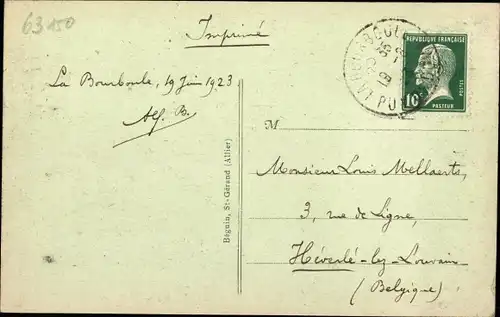 63150
Imprimé
La Bourboule, 19 Juin 1923
Alf. B.
Béguin, St-Gérand (Allier)
LA BOURBOULE
PUY
REPUBLIQUE FRANÇAISE
10c
POSTES
PASTEUR
M
Monsieur Louis Mellaerts,
3, rue de Ligne,
Héverlé-lez-Louvain
(Belgique)